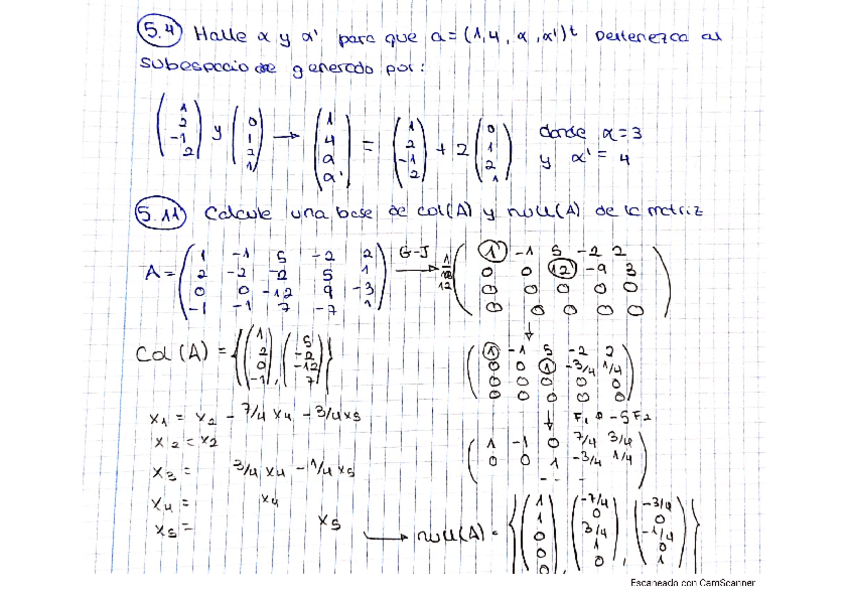 5.4 Halle α y α' para que a = (1, 4, α, α')t Pertenezca al
subespacio de generado por:
(1 2 -1 2) y (0 1 2 1) → (1 4 α α') = (1 2 -1 2) + 2 (0 1 2 1) donde α = 3
y α' = 4
5.11 Calcule una base de col(A) y null(A) de la matriz
A = ( 1 -1 5 -2 2 G-J 1 -1 5 -2 2
2 -2 -2 5 1 0 0 12 -9 3
0 0 -12 9 -3 0 0 0 0 0
-1 -1 7 -7 1 ) 0 0 0 0 0
Col(A) = {(1 2 0 -1), (5 -2 -12 7)}
1 -1 5 -2 2
0 0 1 -3/4 1/4
0 0 0 0 0
0 0 0 0 0
x1 = x2 - 7/4 x4 - 3/4 x5
x2 = x2
x3 = 3/4 x4 - 1/4 x5
x4 = x4
x5 = x5
- 5F2
1 -1 0 7/4 3/4
0 0 1 -3/4 1/4
- - -
→ null(A) = {(1 1 0 0 0), (-7/4 0 3/4 1 0), (-3/4 0 -1/4 0 1)}
Escaneado con CamScanner